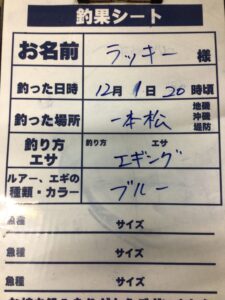 釣果シート
お名前 ラッキー 様
釣った日時 12月 1日 20時頃
釣った場所 一本松 地磯 沖磯 堤防
釣り方 エサ 釣り方 エサ エギング
ルアー、エギの種類・カラー ブルー
魚種 サイズ
魚種 サイズ
魚種 サイズ